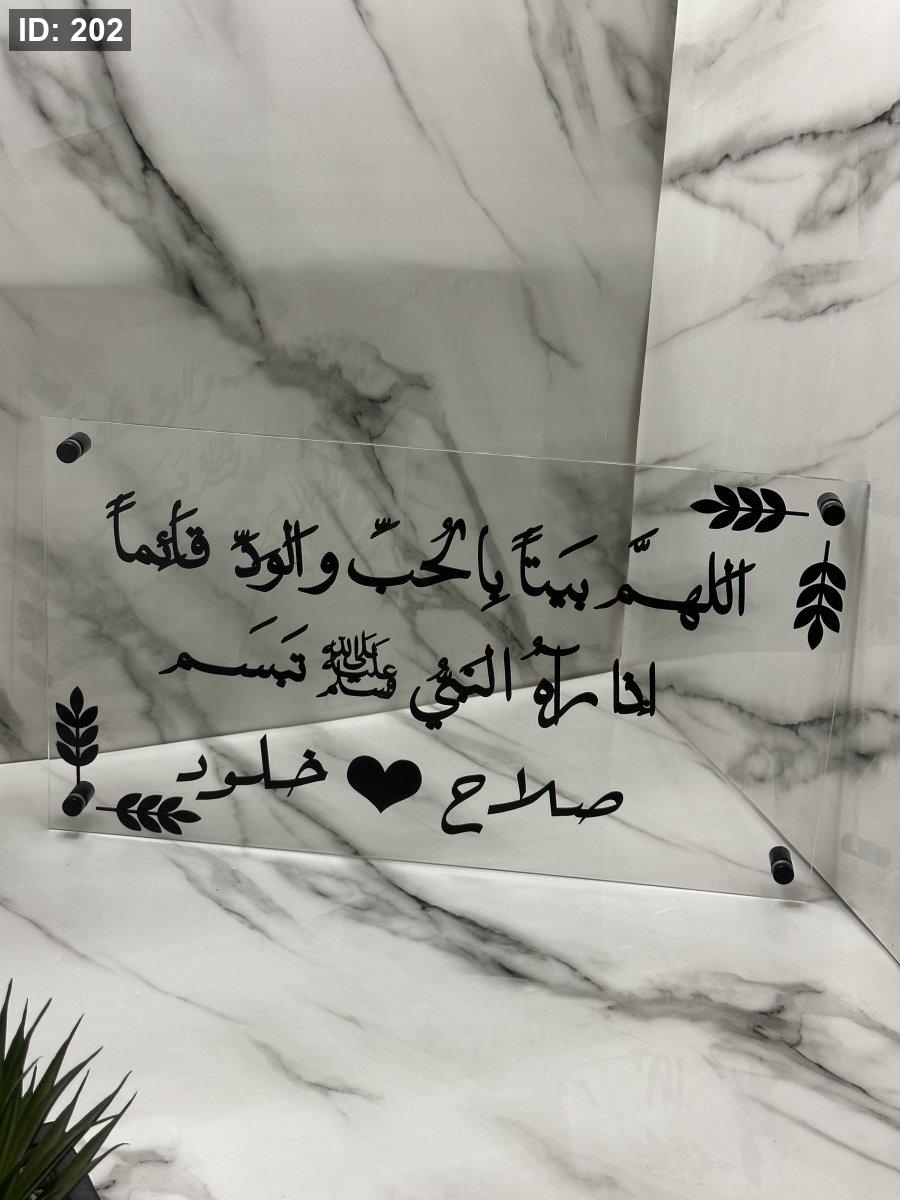 ID: 202
اللهمَّ بيَتاً بِالحُبِّ والودِّ قائِماً
اِذا رآهُ النَبيُّ ﷺ تبَسَم
صلاح ♥ خلود